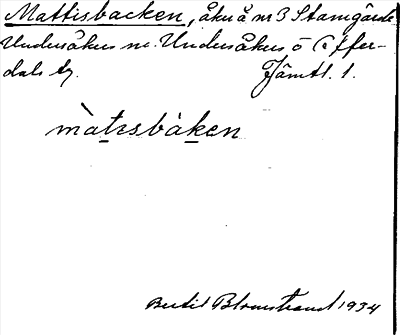 Mattisbacken, åku å nr 3 Stamgärde
Undersåkers sn. Undersåkers o Offer-
dals tg. Jämtl. l.
màtɪsbàken
Bertil Blomstrand 1934